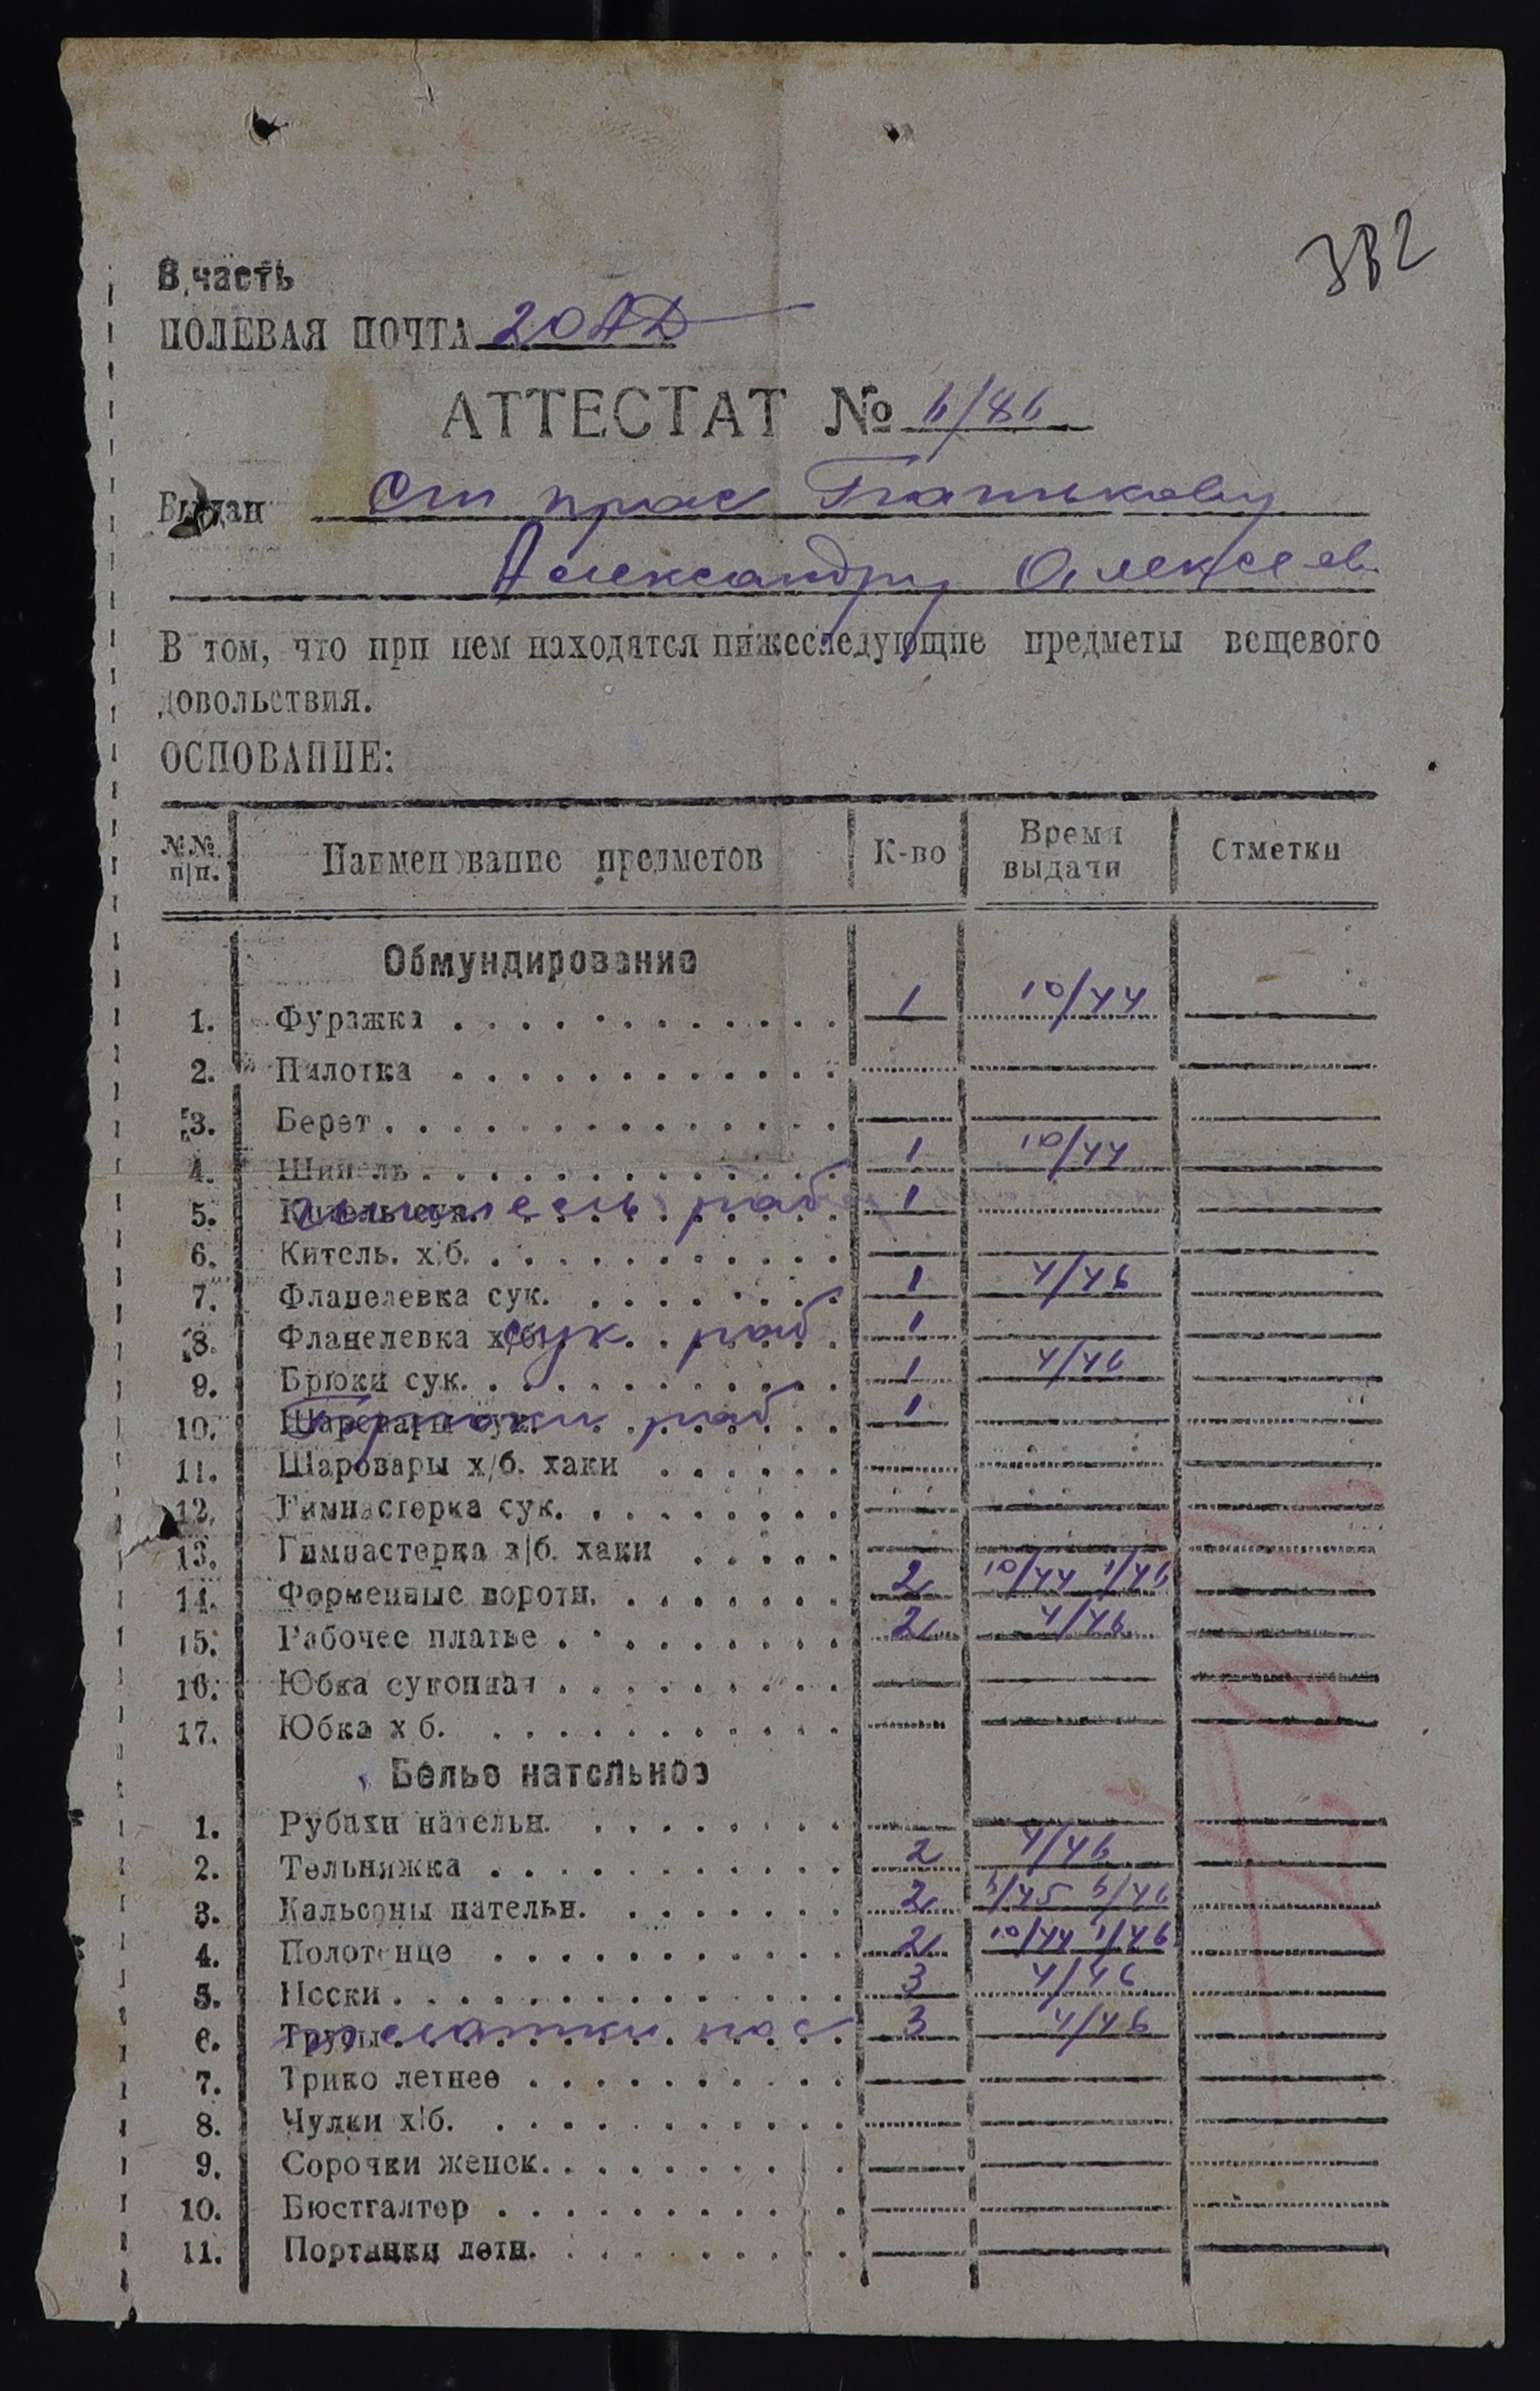 382
В часть
ПОЛЕВАЯ ПОЧТА 20АД
АТТЕСТАТ № 6/86
Выдан Ст
Александру Алексеев.
В том, что при нем находятся нижеследующие предметы вещевого
довольствия.
ОСНОВАНИЕ:
№№ п/п. Наименование предметов К-во Время выдачи Отметки
Обмундирование
1. Фуражка 1 10/44
2. Пилотка
3. Берет
4. Шинель 1 10/44
5. Китель сук. шинель раб 1
6. Китель. х/б.
7. Фланелевка сук. 1 4/46
8. Фланелевка х/б. сук. раб 1
9. Брюки сук. 1 4/46
10. Шаровары сук. Брюки раб 1
11. Шаровары х/б. хаки
12. Гимнастерка сук.
13. Гимнастерка х/б. хаки
14. Форменные воротн. 2 10/44 1/46
15. Рабочее платье 2 4/46
16. Юбка суконная
17. Юбка х б.
Белье нательное
1. Рубахи нательн.
2. Тельняжка 2 4/46
3. Кальсоны нательн. 2 6/45 6/46
4. Полотенце 2 10/44 1/46
5. Носки 3 4/46
6. Трусы платки нос 3 4/46
7. Трико летнее
8. Чулки х/б.
9. Сорочки женск.
10. Бюстгалтер
11. Портянки летн.